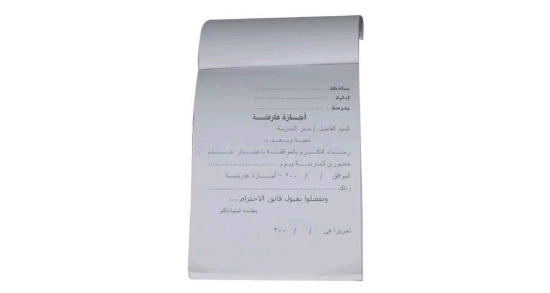 محافظة : ..............................
إدارة : ..............................
مدرسة : ..............................
أجازة عارضة
السيد الفاضل / مدير المدرسة
تحية وبعد ,,
رجاء التكرم بالموافقة باعتبار عدم
حضورى للمدرسة يوم ..............................
الموافق / / ٢٠٠ - أجازة عارضة
وذلك ..............................
وتفضلوا بقبول فائق الاحترام ...
مقدمه لسيادتكم
تحريرا فى / / ٢٠٠